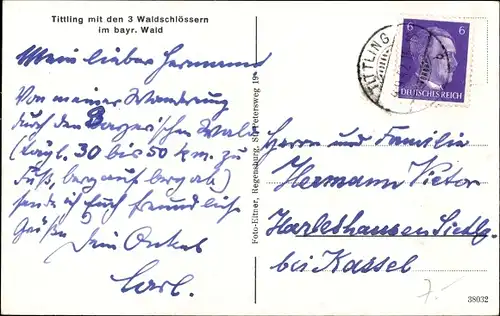 Tittling mit den 3 Waldschlössern
im bayr. Wald
Mein lieber Hermann
Von meiner Wanderung
durch den Bayerischen Wald
(tägl. 30 bis 50 km. zu
Fuß, bergauf bergab)
sende ich Euch freundliche
Grüße Dein Onkel
Carl.
Foto-Eittner, Regensburg, St. Petersweg 19
TITTLING
6 6
DEUTSCHES REICH
Herrn und Familie
Hermann Vietor
Harleshausen Siedlg.
bei Kassel
7.-
38032